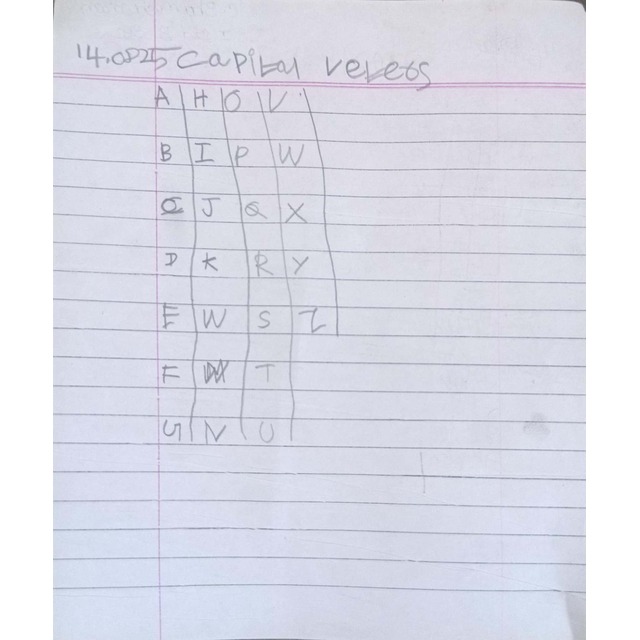 14.0825 Capital veters
A H O V
B I P W
C J Q X
D K R Y
E W S Z
F M T
G N U